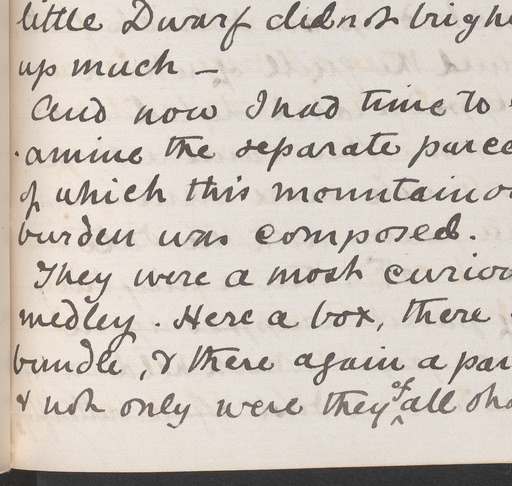 little Dwarf did not brigh
up much –
And now I had time to
amine the separate parce
of which this mountaino
burden was composed.
They were a most curiou
medley. Here a box, there
bundle, & there again a par
& not only were they of all sha